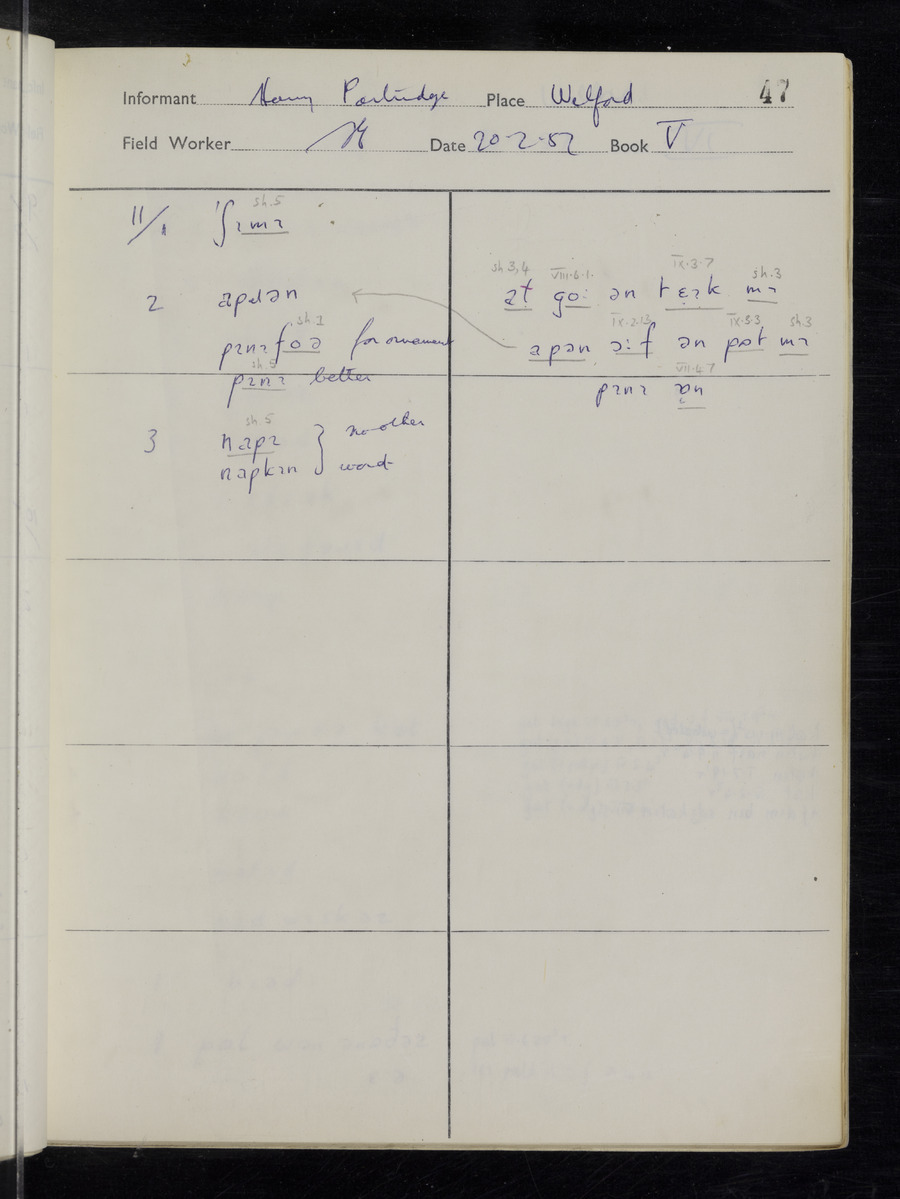 Informant Harry Partridge Place Welford 47
Field Worker Date 20-2-57 Book V
sh.5
11/1 ˈʃɪmɪ
2 apɹən
pɪnɪfɔə for ornament
sh.1
sh.5
pɪnɪ better
sh.5
3 napɪ } no other
napkɪn } word
sh 3,4 VIII.6.1. IX.3.7 sh.3
goː ən mɪ
IX.2.13 IX.3.3 sh.3
apən ɔːf ən pʊt mɪ
VII.4.7
pɪnɪ ɒn